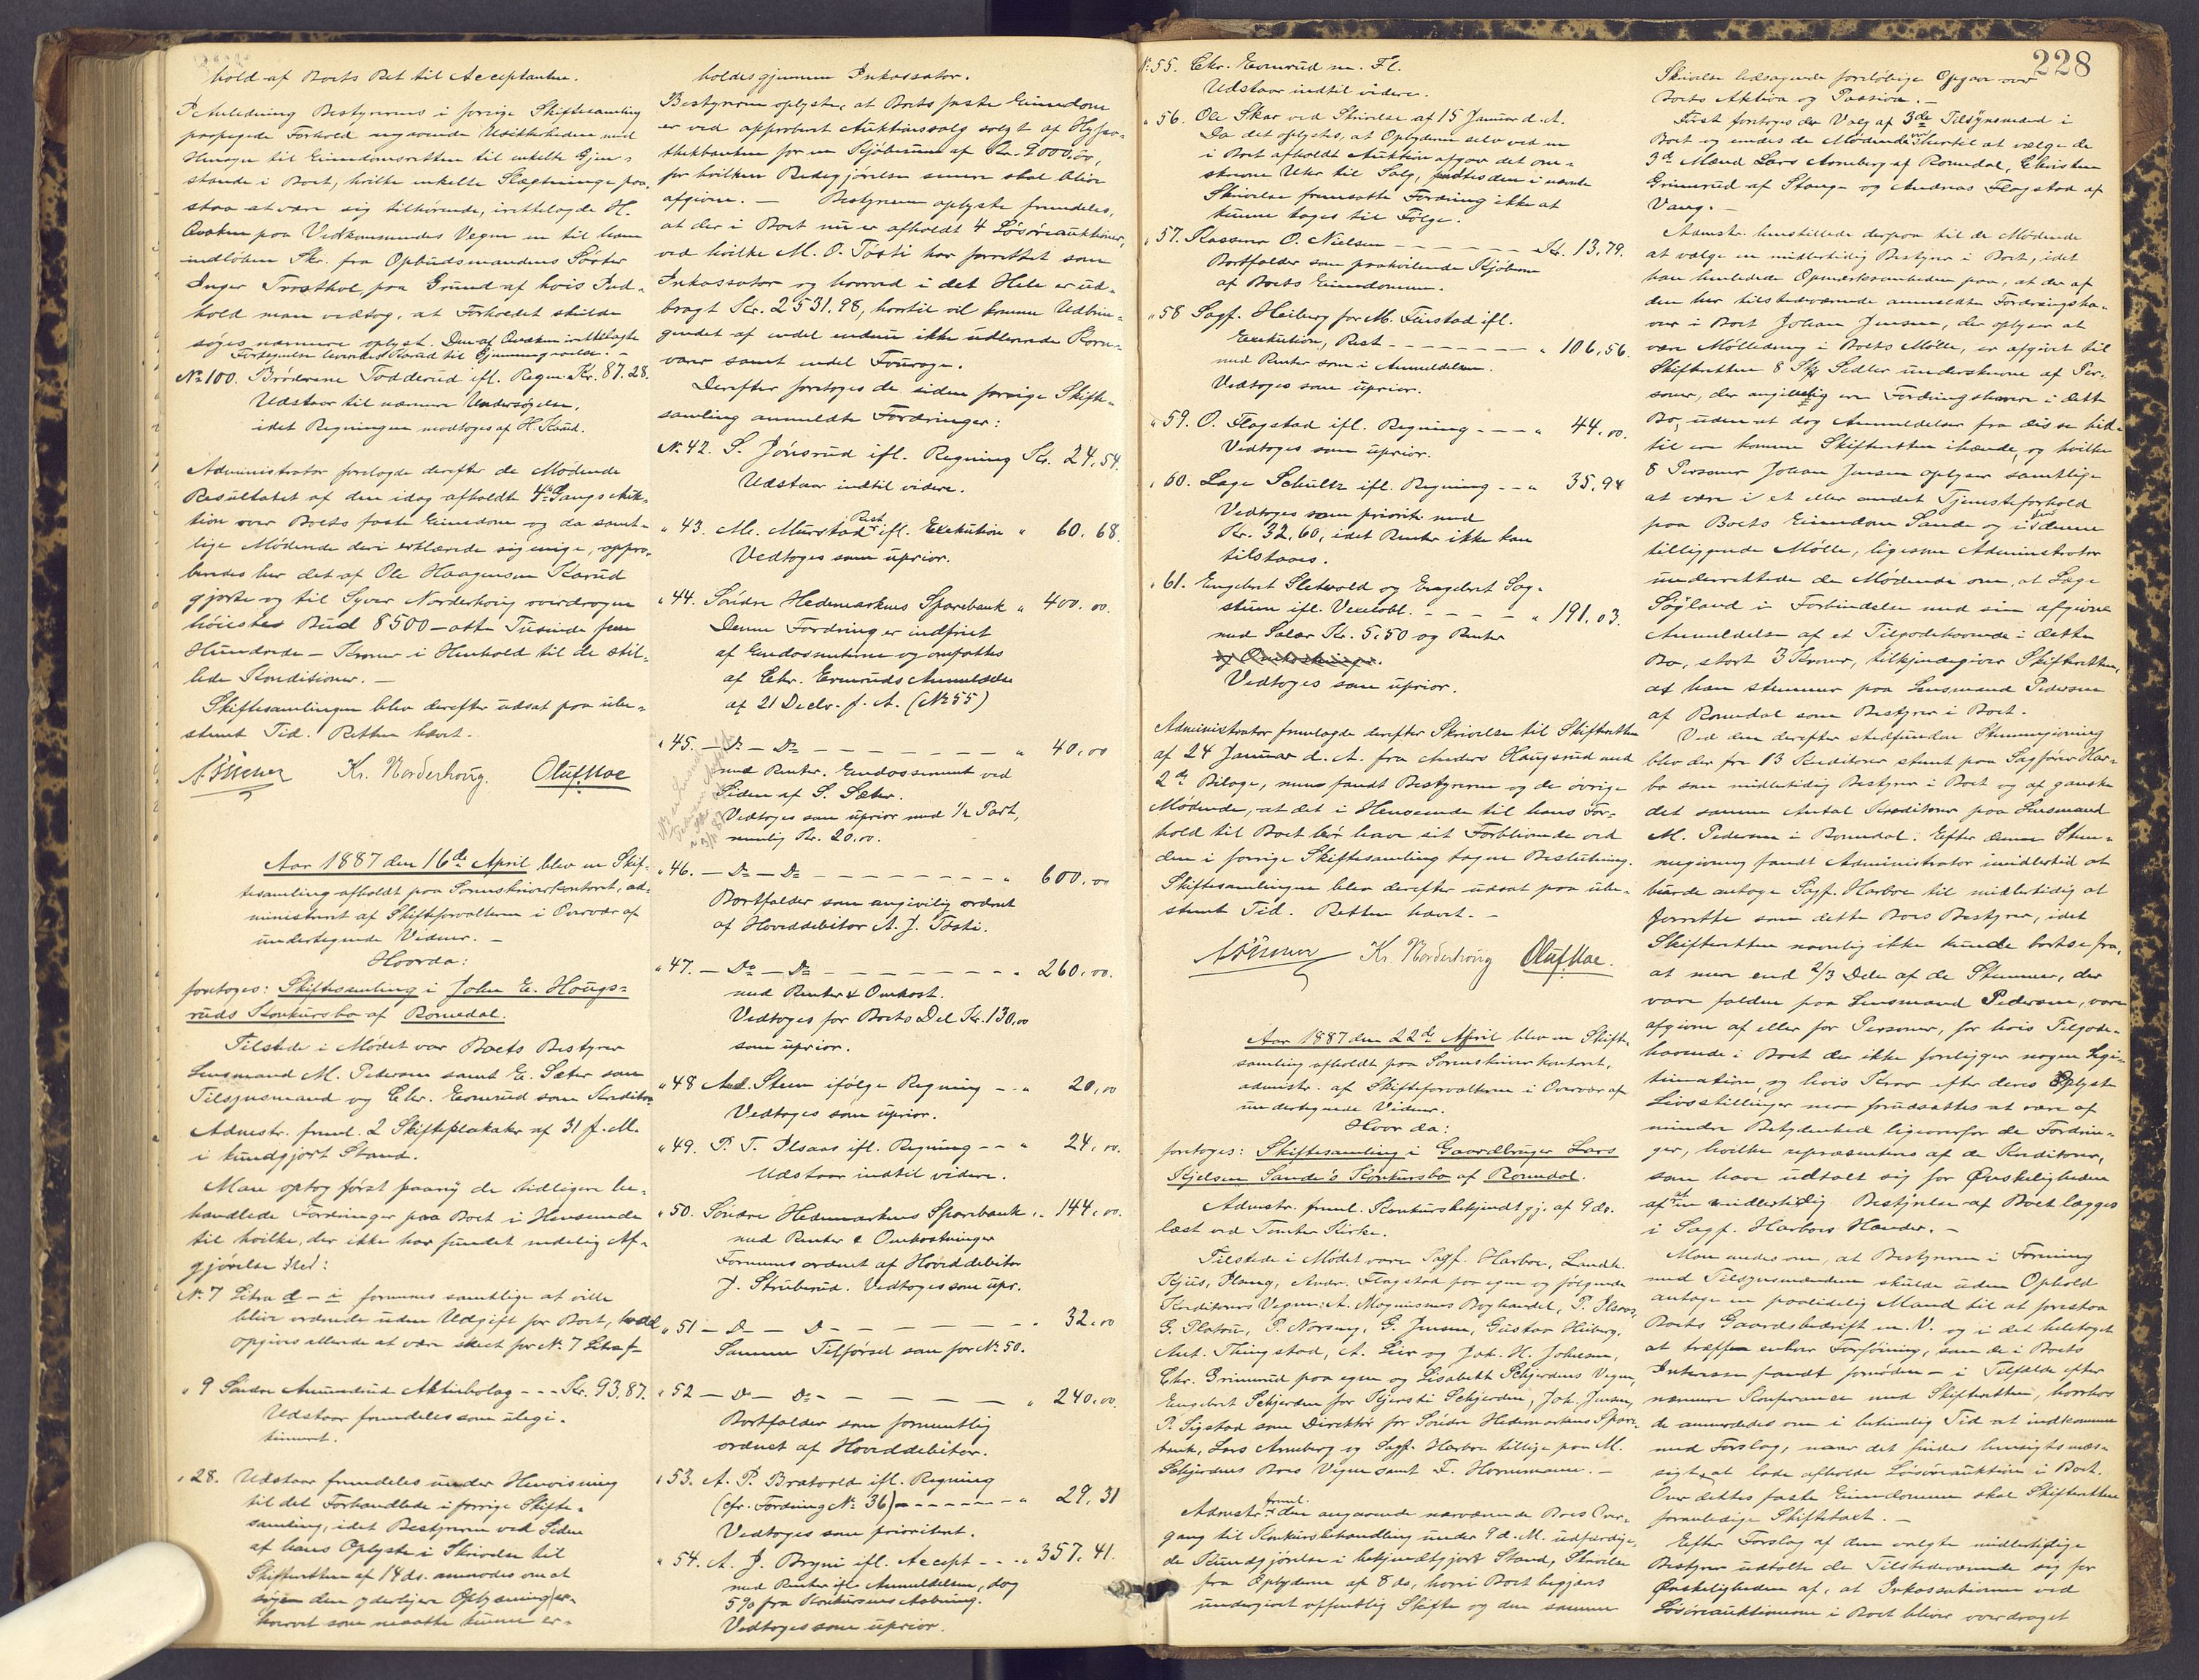 hold af Boets Ret til Acceptanten.
I Anledning Bestyrerens i forrige Skiftesamling
paapegede Forhold angaaende Usikkerheden med
Hensyn til Eiendomsretten til enkelte Gjen-
stande i Boet, hvilke enkelte Slægtninge paa-
staa at være sig tilhørende, irettelagde H.
paa Vedkommendes Vegne en til ham
indløben Skr. fra Opbudsmandens Søster
Inger Trosthol, paa Grund af hvis Ind-
hold man vedtog, at Forholdet skulde
søges nærmere oplyst. Den af irettelagte
til Gjennemgaaelse. -
No 100. Brødrene Todderud ifl. Regn. Kr. 87.28.
Udstaar til nærmere Undersøgelse,
idet Regningen modtoges af H.
Administrator forelagde derefter de Mødende
Resultatet af den idag afholdte 4de Gangs Auk-
tion over Boets faste Eiendom og da samt-
lige Mødende deri erklærede sig enige, appro-
beredes her det af Ole Haagensen Karud
gjorte og til Syver Norderhoug overdragne
høieste Bud 8500 - otte Tusinde fem
Hundrede - Kroner i Henhold til de stil-
lede Konditioner. -
Skiftesamlingen blev derefter udsat paa ube-
stemt Tid. Retten hævet. -
Kr. Norderhoug. Oluf Moe
Aar 1887 den 16de April blev en Skif-
tesamling afholdt paa Sorenskriverkontoret, ad-
ministreret af Skifteforvalteren i Overvær af
undertegnede Vidner. -
Hvorda:
foretoges: Skiftesamling i John E. Haugs-
ruds Konkursbo af Romedal.
Tilstede i Mødet var Boets Bestyrer
Lensmand M. Pedersen samt E. Sæter som
Tilsynsmand og Chr. Ermrud som Kreditor
Admstr. freml. 2 Skifteplakater af 31 f. M.
i kundgjort Stand.
Man optog først paany de tidligere be-
handlede Fordringer paa Boet i Henseende
til hvilke, der ikke har fundet endelig Af-
gjørelse Sted:
No. 7 Litra d - i formenes samtlige at ville
blive ordnede uden Udgift for Boet, hvad
opgives allerede at være skeet for No. 7 Litra f
" 9 Søndre Aktiebolag - - - Kr. 93.87.
Udstaar fremdeles som ulegi-
timeret.
" 28. Udstaar fremdeles under Henvisning
til det Forhandlede i forrige Skifte-
samling, idet Bestyreren ved Siden
af hans Oplyste i Skrivelse til
Skifteretten af 14 ds. anmodes om at
søge den yderligere Oplysning er-
hvervet som maatte kunne er-
holdes gjennem Inkassator.
Bestyreren oplyste, at Boets faste Eiendom
er ved approberet Auktionssalg solgt af Hypo-
thekbanken for en Kjøbesum af Kr. 9000,00,
for hvilken Redegjørelse senere skal blive
afgiven. - Bestyreren oplyste fremdeles,
at der i Boet nu er afholdt 4 Løsøreauktioner,
ved hvilke M. O. Tosti har forrettet som
Inkassator og hvorved i det Hele er ud-
bragt Kr. 2531.98, hvortil vil komme Udbrin-
gendet af endel endnu ikke udleverede Korn-
varer samt endel Fourage.
Derefter foretoges de siden forrige Skifte-
samling anmeldte Fordringer:
No. 42. S. Jønsrud ifl. Regning Kr. 24.54.
Udstaar indtil videre.
" 43. M. Murstad Rest ifl. Exekution " 60.68.
Vedtoges som uprior.
" 44. Søndre Hedemarkens Sparebank " 400.00.
Denne Fordring er indfriet
af Endossenterne og omfattes
af Chr. Ermruds Anmeldelse
af 21 Decbr. f. A. (No 55)
" 45. - Do - Do - - - - - - - - " 40,00
med Renter. Endossement ved
Siden af S. Sæter.
Vedtoges som uprior med 1/2 Part,
nemlig Kr. 20.00.
" 46. - Do - Do - - - - - - - - " 600.00
Bortfalder som angivelig ordnet
af Hoveddebitor A. J. Tosti.
" 47. - Do - Do - - - - - - - - " 260.00.
med Renter & Omkost.
Vedtoges for Boets Del Kr. 130,00
som uprior.
" 48 And. Steen ifølge Regning - - " 20,00
Vedtoges som uprior.
" 49. P. T. Ilsaas ifl. Regning - - " 24,00.
Udstaar indtil videre.
" 50. Søndre Hedemarkens Sparebank " 144.00.
med Renter & Omkostninger
Formenes ordnet af Hoveddebitor
J. Struberud. Vedtoges som upr.
" 51 - D - D - - - - - - - " 32.00
Samme Tilførsel som for No 50.
" 52 - D - D - - - - - " 240.00.
Bortfalder som formentlig
ordnet af Hoveddebitor.
" 53. A. P. Bratvold ifl. Regning
(cfr. Fordring No. 36) - - - - - - - " 29.31
Vedtoges som prioritert.
" 54. A. J. Bryni ifl. Accept - - - " 357.41.
med Renter ifl. Anmeldelsen, dog
5% fra Konkursens Aabning.
Vedtoges som uprior.
228
No 55. Chr. Ermrud m. Fl.
Udstaar indtil videre.
" 56. Ole Skar ved Skrivelse af 15 Januar d. A.
Da det oplystes, at Opbyderen selv ved en
i Boet afholdt Auktion afgav det om-
skrevne Uhr til Salg, fandtes den i nævnte
Skrivelse fremsatte Fordring ikke at
kunne tages til Følge.
" 57. Kasserer O. Nielsen - - - - - - - Kr. 13,79.
Bortfalder som paahvilende Kjøberen
af Boets Eiendommen.
" 58 Sagf. Heiberg for M. Finstad ifl.
Exekution, Rest - - - - - - - - " 106,56.
med Renter som i Anmeldelsen.
Vedtoges som uprior.
" 59. O. Flagstad ifl. Regning - - - " 44.00.
Vedtoges som uprior.
" 60. Lage Schultz ifl. Regning - - " 35.94
Vedtoges som priorit. med
Kr. 32,60, idet Renter ikke kan
tilstaaes.
" 61. Engebret Sletvold og Engebret Sag-
stuen ifl. Vexelobl. - - - - " 191.03.
med Salær Kr. 5.50 og Renter
og Omkostninger.
Vedtoges som uprior.
Administrator fremlagde derefter Skrivelse til Skifteretten
af 24 Januar d. A. fra Anders Haugsrud med
2de Bilage, men fandt Bestyreren og de øvrige
Mødende, at det i Henseende til hans For-
hold til Boet bør have sit Forblivende ved
den i forrige Skiftesamling tagne Beslutning.
Skiftesamlingen blev derefter udsat paa ube-
stemt Tid. Retten hævet. -
Kr. Norderhoug Oluf Moe.
Aar 1887 den 22de April blev en Skifte-
samling afholdt paa Sorenskriverkontoret,
admistr. af Skifteforvalteren i Overvær af
undertegnede Vidner.
Hvor da:
foretoges: Skiftesamling i Gaardbruger Lars
Kjelsen Sande's Konkursbo af Romedal.
Admstr. freml. Konkursbekjendtgj. af 9 ds.
læst ved Tomter Kirke.
Tilstede i Mødet vare Sagf. Harboe, Landh.
Kjus, Plang, Andr. Flagstad paa egne og følgende
Kreditorers Vegne: A. Magnussens Boghandel, P. Ilsaas,
G. Platou, P. Norseng, G. Jensen, Gustav Heiberg,
Ant. Thingstad, A. Lier og Joh. H. Johnsen,
Chr. Grimerud paa egne og Lisabeth Schjerdens Vegne,
Engebret Schjerden for Kjersti Schjerden, Joh. Jensen,
P. Sigstad som Direktør for Søndre Hedemarkens Spare-
bank, Lars Arneberg og Sagf. Harboe tillige paa M.
Schjerdens Boes Vegne samt F. Hornemann. -
Admstr. freml. den angaaende nærværende Boes Over-
gang til Konkursbehandling under 9 d. M. udfærdige-
de Kundgjørelse i bekjendtgjort Stand, Skrivelse
fra Opbyderen af 8 ds, hvori Boet begjæres
undergivet offentlig Skifte og den samme
Skrivelse ledsagende foreløbige Opgave over
Boets Aktiva og Passiva. -
Først foretoges der Valg af 3de Tilsynsmænd i
Boet og endes de Mødende om hertil at vælge de
3de Mænd Lars Arneberg af Romedal, Christen
Grimerud af Stange og Andreas Flagstad af
Vang. -
Admstr. henstillede derpaa til de Mødende
at vælge en midlertidig Bestyrer i Boet, idet
han henledede Opmærksomheden paa, at der af
den her tilstedeværende anmeldte Fordringsha-
ver i Boet Johan Jensen, der oplyser at
være Mølledreng i Boets Mølle, er afgivet til
Skifteretten 8 Stk Sedler underskrevne af Per-
soner, der angivelig ere Fordringshavere i dette
Bo, uden at dog Anmeldelser fra disse hid-
til ere komne Skifteretten ihænde, og hvilke
8 Personer Johan Jensen oplyser samtlige
at være i et eller andet Tjenesteforhold
paa Boets Eiendom Sande og i den denne
tilliggende Mølle, ligesom Administrator
underrettede de Mødende om, at Læge
Søyland i Forbindelse med sin afgivne
Anmeldelse af et Tilgodehavende i dette
Bo, stort 3 Kroner, tilkjendegiver Skifteretten,
at han stemmer paa Lensmand Pedersen
af Romedal som Bestyrer i Boet.
Ved den derefter stedfundne Stemmegivning
blev der fra 13 Kreditorer stemt paa Sagfører Har-
bo som midlertidig Bestyrer i Boet og af ganske
det samme Antal Kreditorer paa Lensmand
M. Pedersen i Romedal. Efter denne Stem-
megivning fandt Administrator imidlertid at
burde antage Sagf. Harboe til midlertidig at
forrette som dette Boes Bestyrer, idet
Skifteretten navnlig ikke kunde bortse fra,
at mer end 2/3 Dele af de Stemmer, der
vare faldne paa Lensmand Pedersen, vare
afgivne af eller for Personer, for hvis Tilgode-
havende i Boet der ikke foreligger nogen Legi-
timation, og hvis Krav efter deres oplyste
Livsstillinger maa forudsættes at være af
mindre Betydenhed ligeoverfor de Fordrin-
ger, hvilke repræsenteres af de Kreditorer,
som have udtalt sig for Ønskeligheden
af at en midlertidig Bestyrelse af Boet lægges
i Sagf. Harboes Hænder. -
Man endes om, at Bestyreren i Forening
med Tilsynsmændene skulde uden Ophold
antage en paalidelig Mand til at forestaa
Boets Gaardsbedrift m. V. og i det heletaget
at træffe enhver Forføining, som de i Boets
Interesse fandt fornøden - i Tilfælde efter
nærmere Konferance med Skifteretten, hvorhos
de anmodedes om i betimelig Tid at indkomme
med Forslag, naar det findes hensigtsmæs-
sigt, at lade afholde Løsøreauktion i Boet.
Over dettes faste Eiendomme skal Skifteretten
foranledige Skiftetaxt. -
Efter Forslag af den valgte midlertidige
Bestyrer udtalte de Tilstedeværende sig for
Ønskeligheden af, at Inkassationen ved
Løsøreauktionerne i Boet bliver overdraget